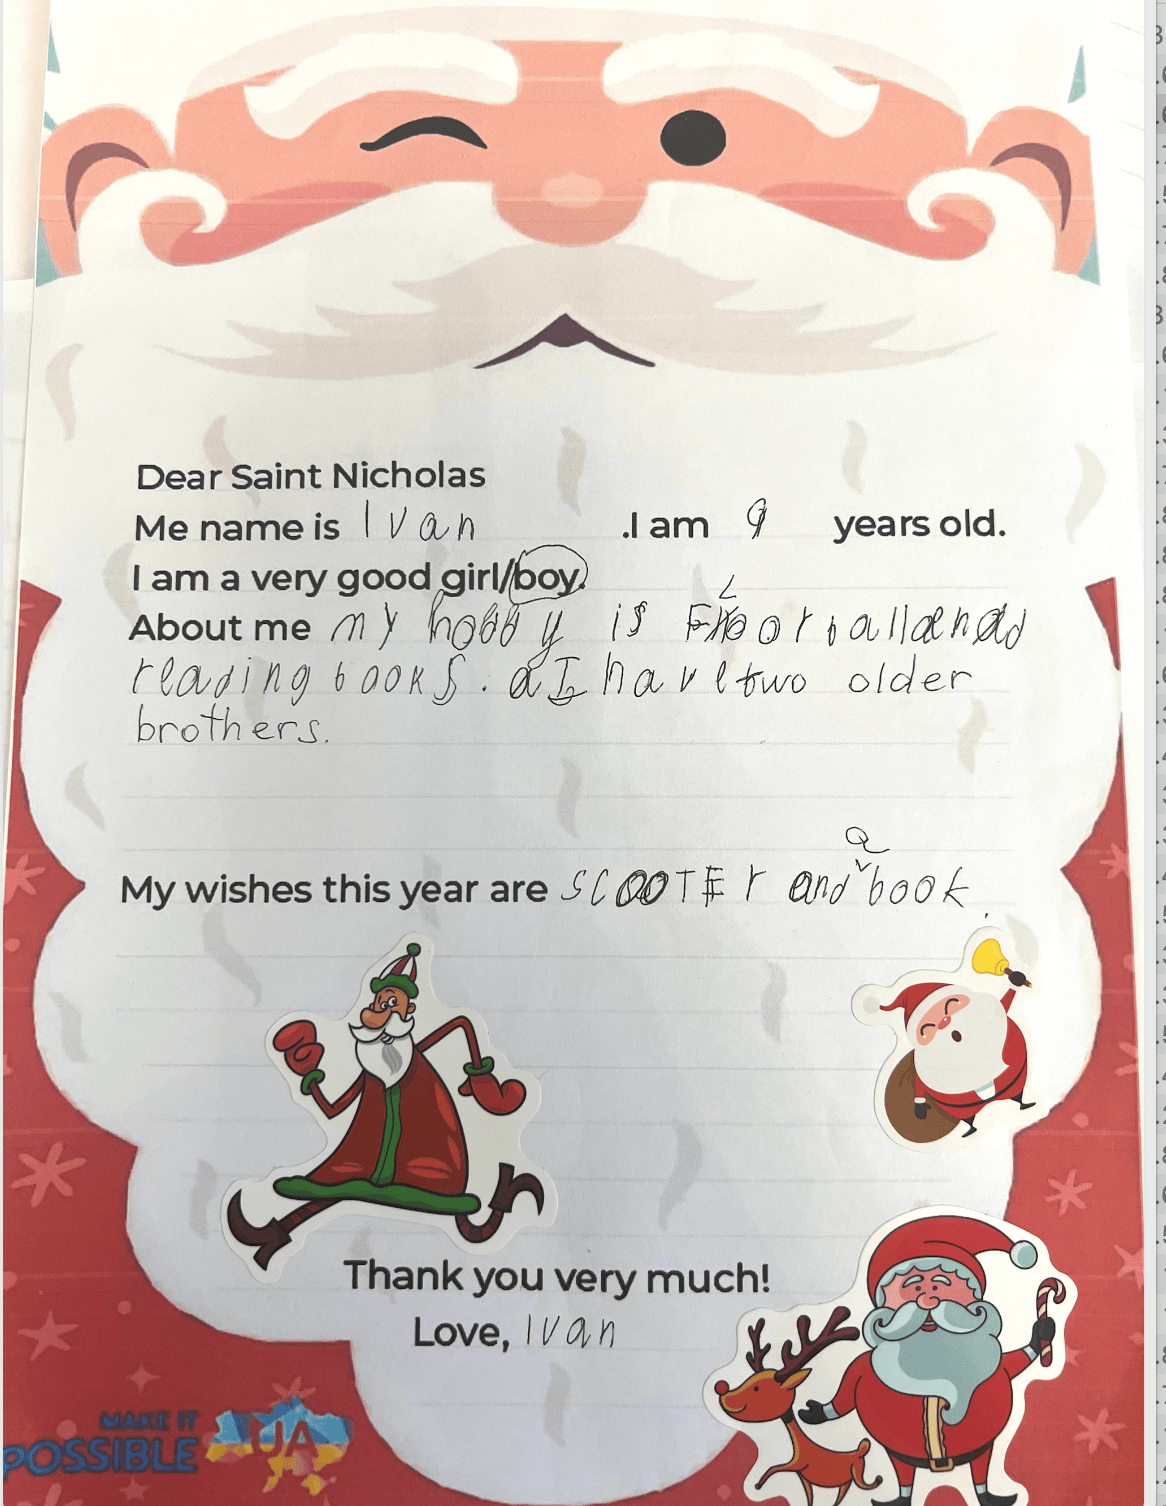 Dear Saint Nicholas
Me name is Ivan .I am 9 years old.
I am a very good girl/boy.
About me my hobby is and
reading books. I have two older
brothers.
My wishes this year are SCOOTEr and a book.
Thank you very much!
Love, Ivan
MAKE IT
POSSIBLE
UA